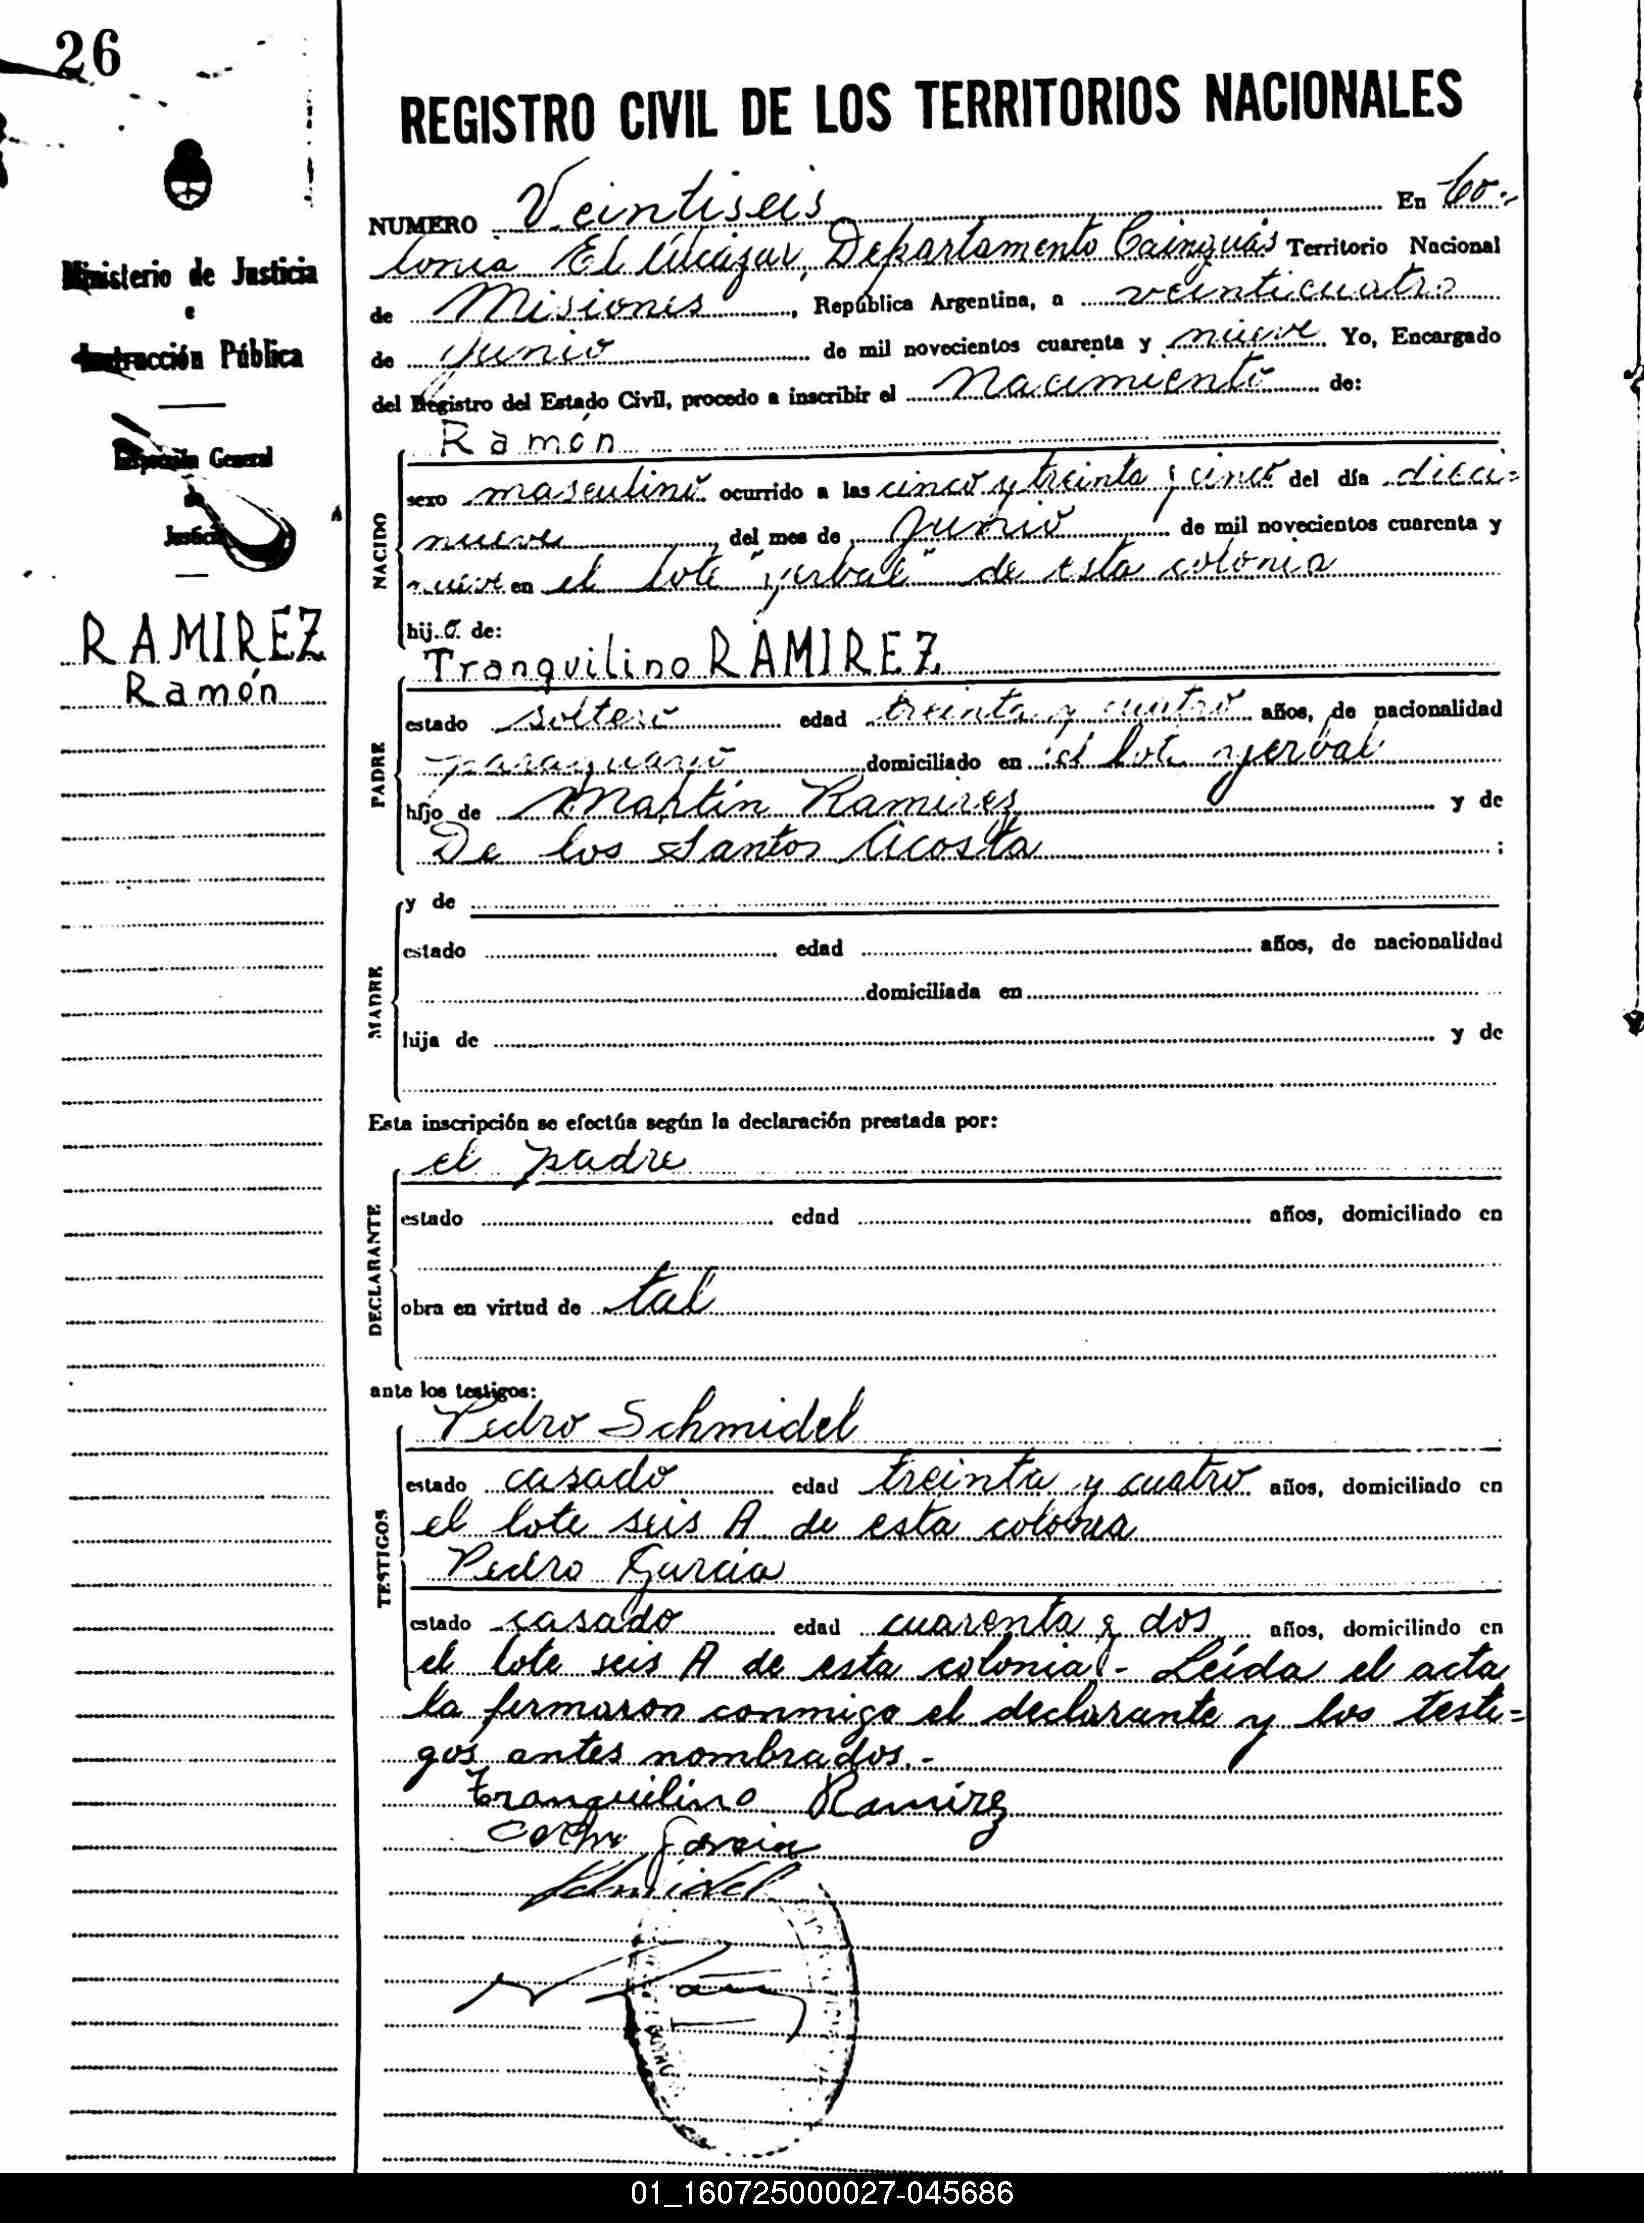 26
Ministerio de Justicia
e
Instrucción Pública
Inspección General
de
Justicia
RAMIREZ
Ramón
REGISTRO CIVIL DE LOS TERRITORIOS NACIONALES
NUMERO Veintiseis En Co-
lonia El Alcázar, Departamento Cainguás Territorio Nacional
de Misiones, República Argentina, a veinticuatro
de Junio de mil novecientos cuarenta y nueve Yo, Encargado
del Registro del Estado Civil, procedo a inscribir el Nacimiento de:
Ramón
NACIDO
sexo masculino ocurrido a las cinco y treinta y cinco del día dieci=
nueve del mes de Junio de mil novecientos cuarenta y
nueve en el lote "yerbal" de esta colonia
hijo de:
Tranquilino RAMIREZ
PADRE
estado soltero edad treinta y cuatro años, de nacionalidad
paraguayo domiciliado en el lote yerbal
hijo de Martín Ramirez y de
De los Santos Acosta ;
MADRE
y de
estado edad años, de nacionalidad
domiciliada en
hija de y de
Esta inscripción se efectúa según la declaración prestada por:
el padre
DECLARANTE
estado edad años, domiciliado en
obra en virtud de tal
ante los testigos:
Pedro Schmidel
TESTIGOS
estado casado edad treinta y cuatro años, domiciliado en
el lote seis A de esta colonia
Pedro Garcia
estado casado edad cuarenta y dos años, domiciliado en
el lote seis A de esta colonia.- Leída el acta
la firmaron conmigo el declarante y los testi=
gos antes nombrados.-
Tranquilino Ramirez
Garcia
Schmidel
01_160725000027-045686